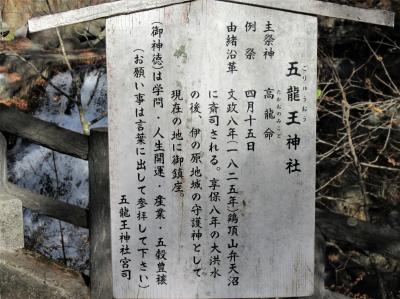 五龍王神社
ごりゅうおう
主祭神　高龍命
たかおのみこと
例祭　四月十五日
由緒沿革　文政八年(一八二五年)鶏頂山弁天沼
に斎司される。享保八年の大洪水
の後、伊の原地域の守護神として
現在の地に御鎮座。
(御神徳)は学問・人生開運・産業・五穀豊穣
(お願い事は言葉に出して参拝して下さい)
五龍王神社宮司